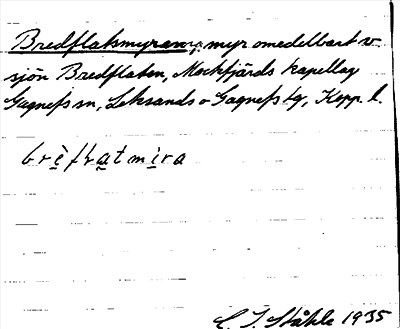 Bredflaksmyrarna, myr omedelbart v
sjön Bredflaten, Mockfjärds kapellag
Gagnefs sn, Leksands o Gagnefs tg, Kopp. l.
brèflatmira
H. J. Ståhle 1935